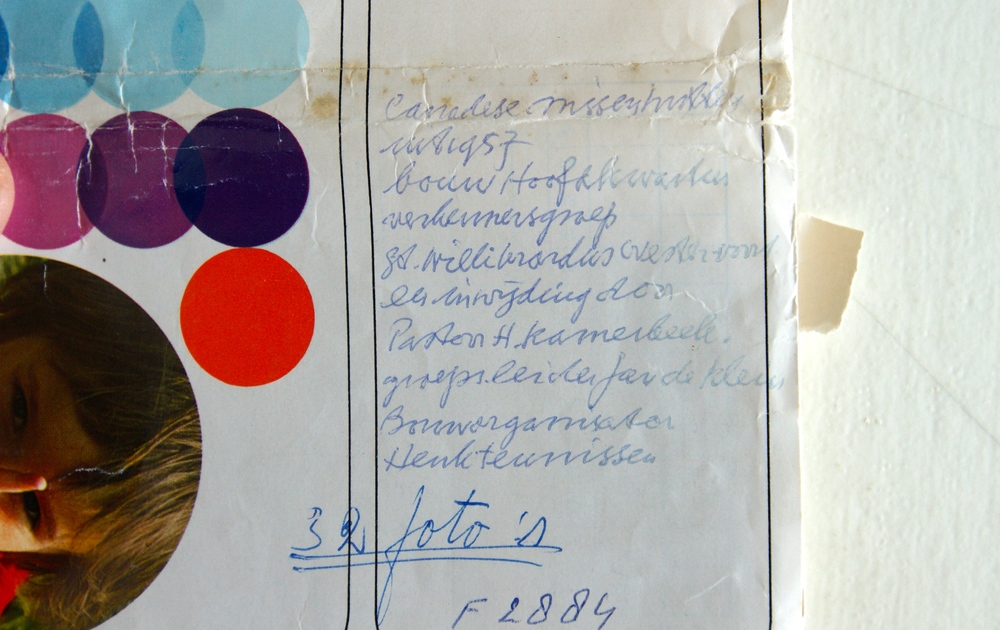 Canadese missenhutten
uit 1957
bouw Hoofdkwartier
verkennersgroep
St. Willibrordus Westervoort
en inwijding door
Pastoor H. Kamerbeek.
groepsleider Jan de Klein
Bouworganisator
Henk Teunissen
32 foto's
F 2884